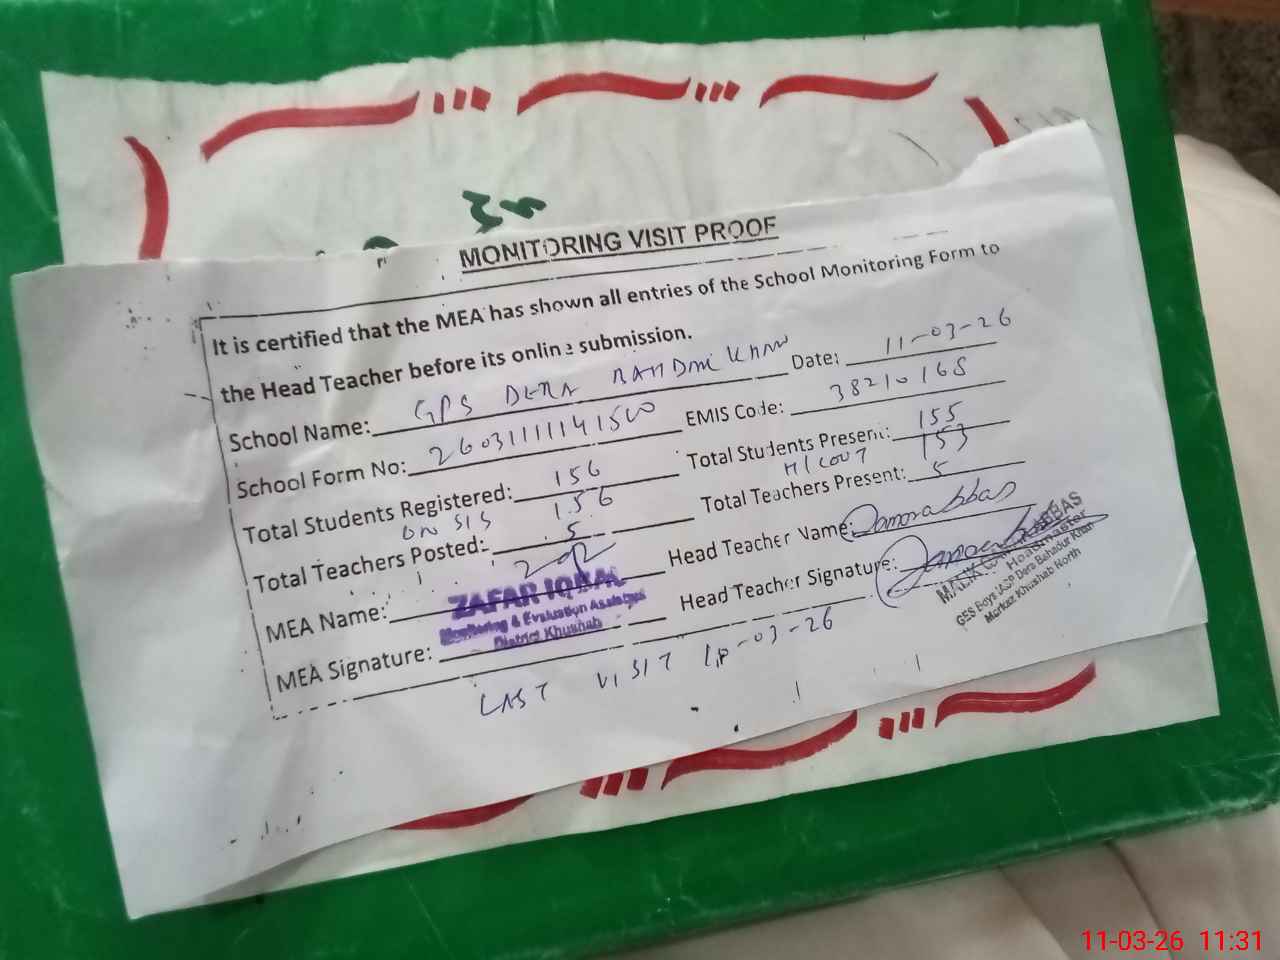 MONITORING VISIT PROOF
It is certified that the MEA has shown all entries of the School Monitoring Form to
the Head Teacher before its online submission.
School Name: GPS DERA Khan Date: 11-03-26
School Form No: 26031111141500 EMIS Code: 38210168
Total Students Registered: 156 Total Students Present: 155
on SIS 156 H/COUT 153
Total Teachers Posted: 5 Total Teachers Present: 5
MEA Name: Head Teacher Name: Qamar Abbas
ZAFAR IQBAL
Monitoring & Evaluation Assistant
District Khushab
MEA Signature: Head Teacher Signature:
MALIK ABBAS
Headmaster
GES Boys Dera Bahadur Khan
Markaz Khushab North
LAST VISIT -03-26
11-03-26 11:31